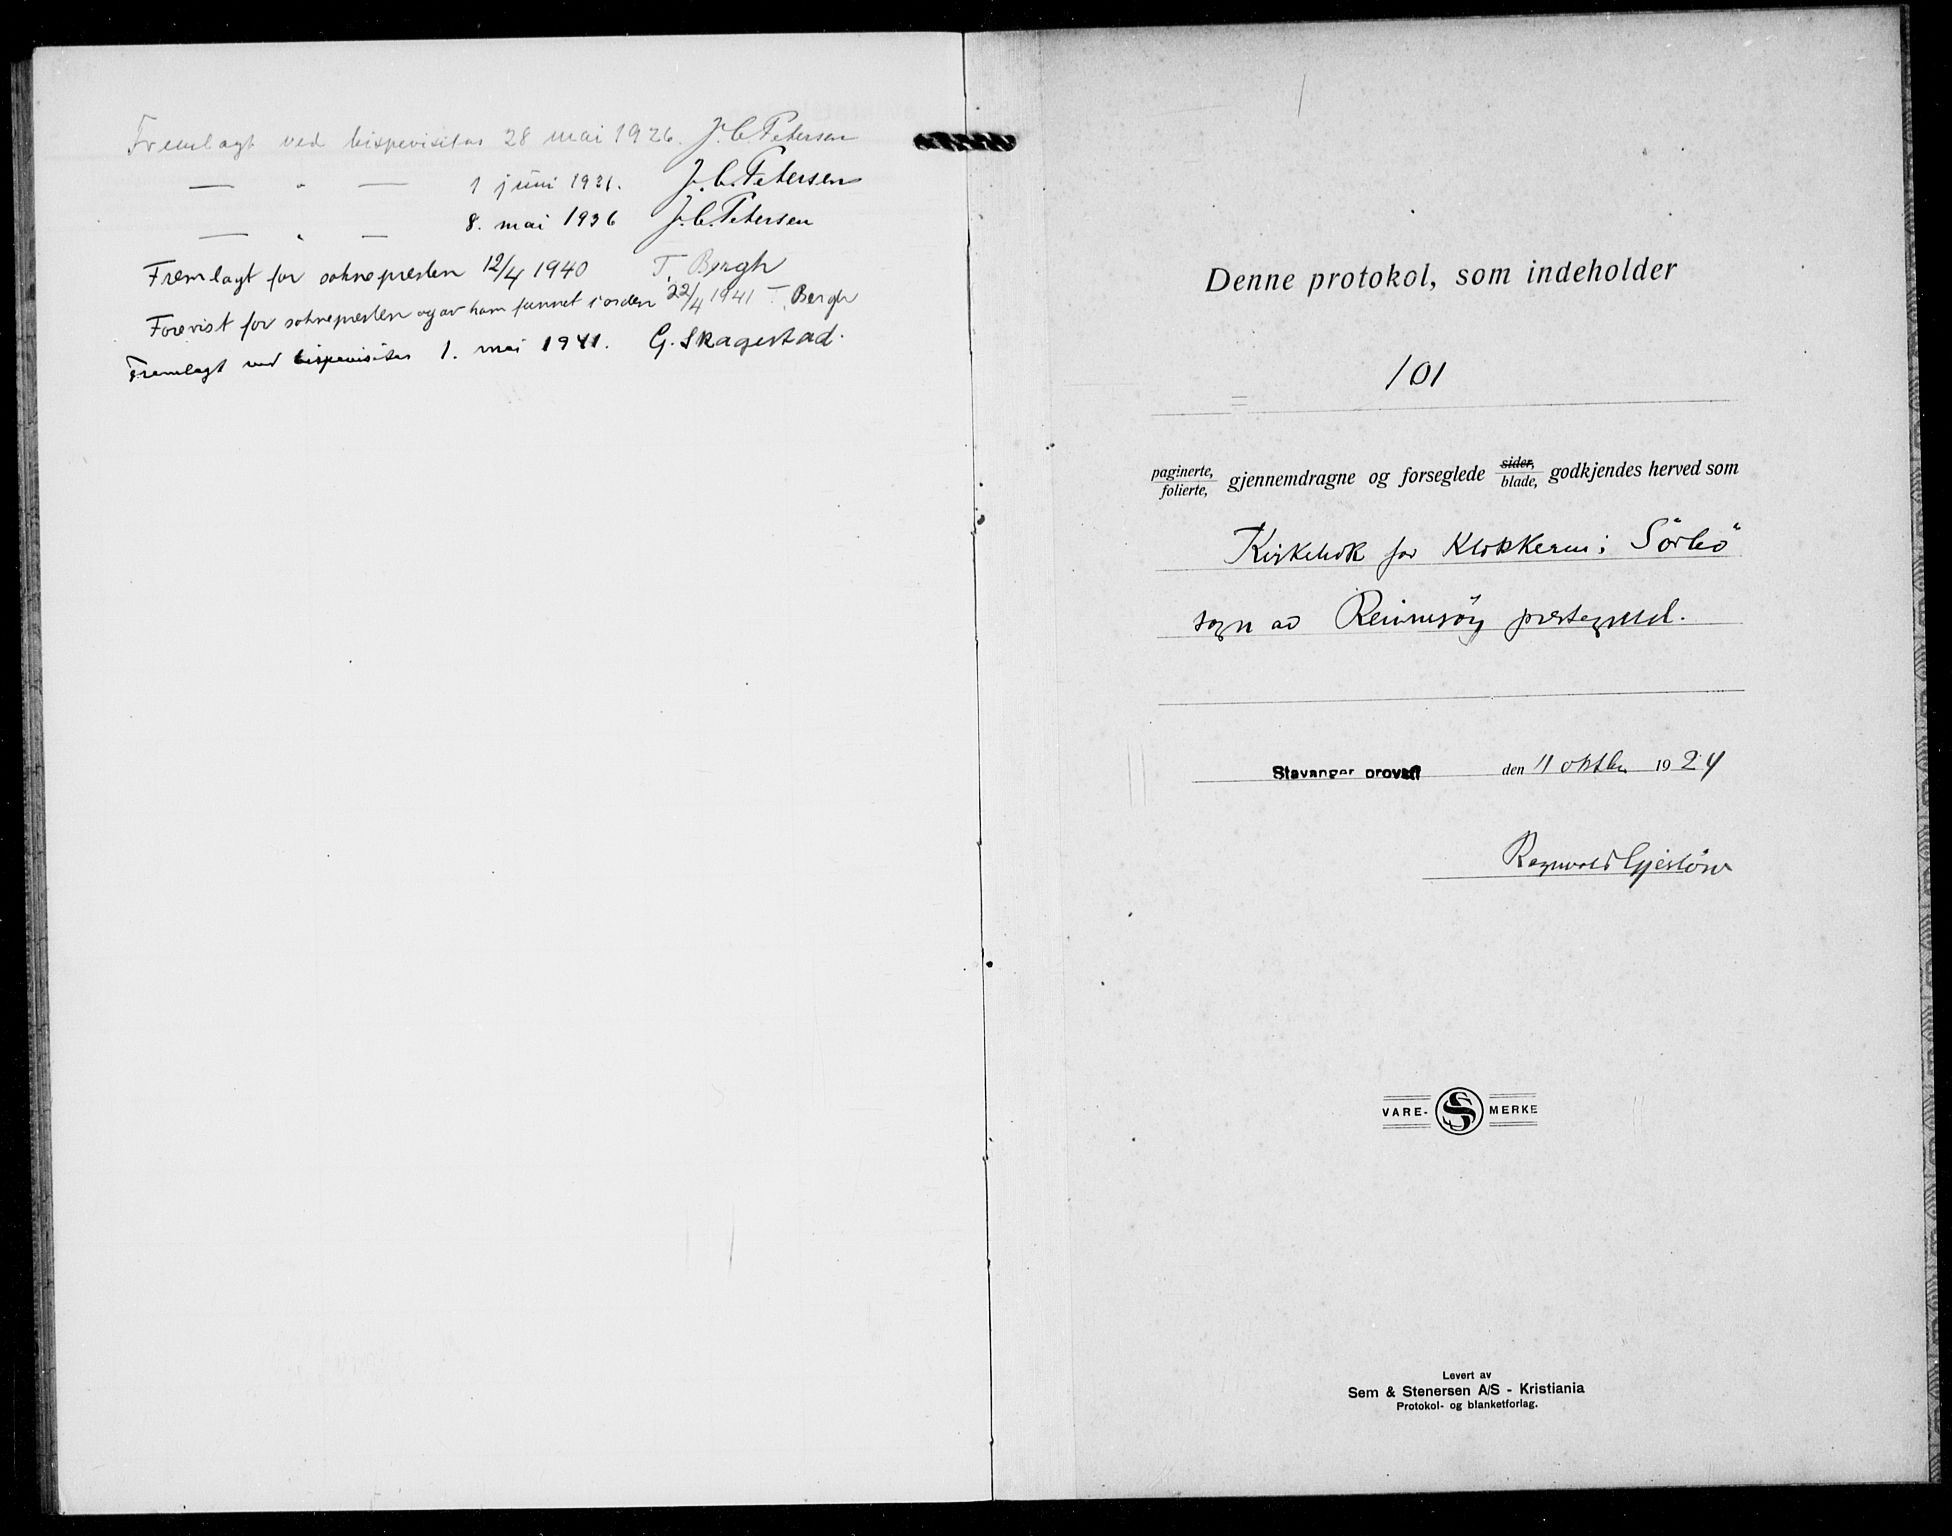 Fremlagt ved bispevisitas 28 mai 1926. J. C. Petersen
— " — 1 juni 1931. J. C. Petersen
— " — 8. mai 1936 J. C. Petersen
Fremlagt for soknepresten 12/4 1940 T. Bergh
Forevist for soknepresten og av ham funnet i orden 22/4 1941 T. Bergh
Fremlagt ved bispevisitas 1. mai 1941. G. Skagestad.
Denne protokol, som indeholder
101
paginerte, folierte, gjennemdragne og forseglede sider, blade, godkjendes herved som
Kirkebok for Klokkeren i Sörbö
sogn av Rennesöy prestegjeld.
Stavanger prosti den 11 oktbr 1924
Ragnvald Gjerlöw
VARE- S MERKE
Levert av
Sem & Stenersen A/S - Kristiania
Protokol- og blanketforlag.